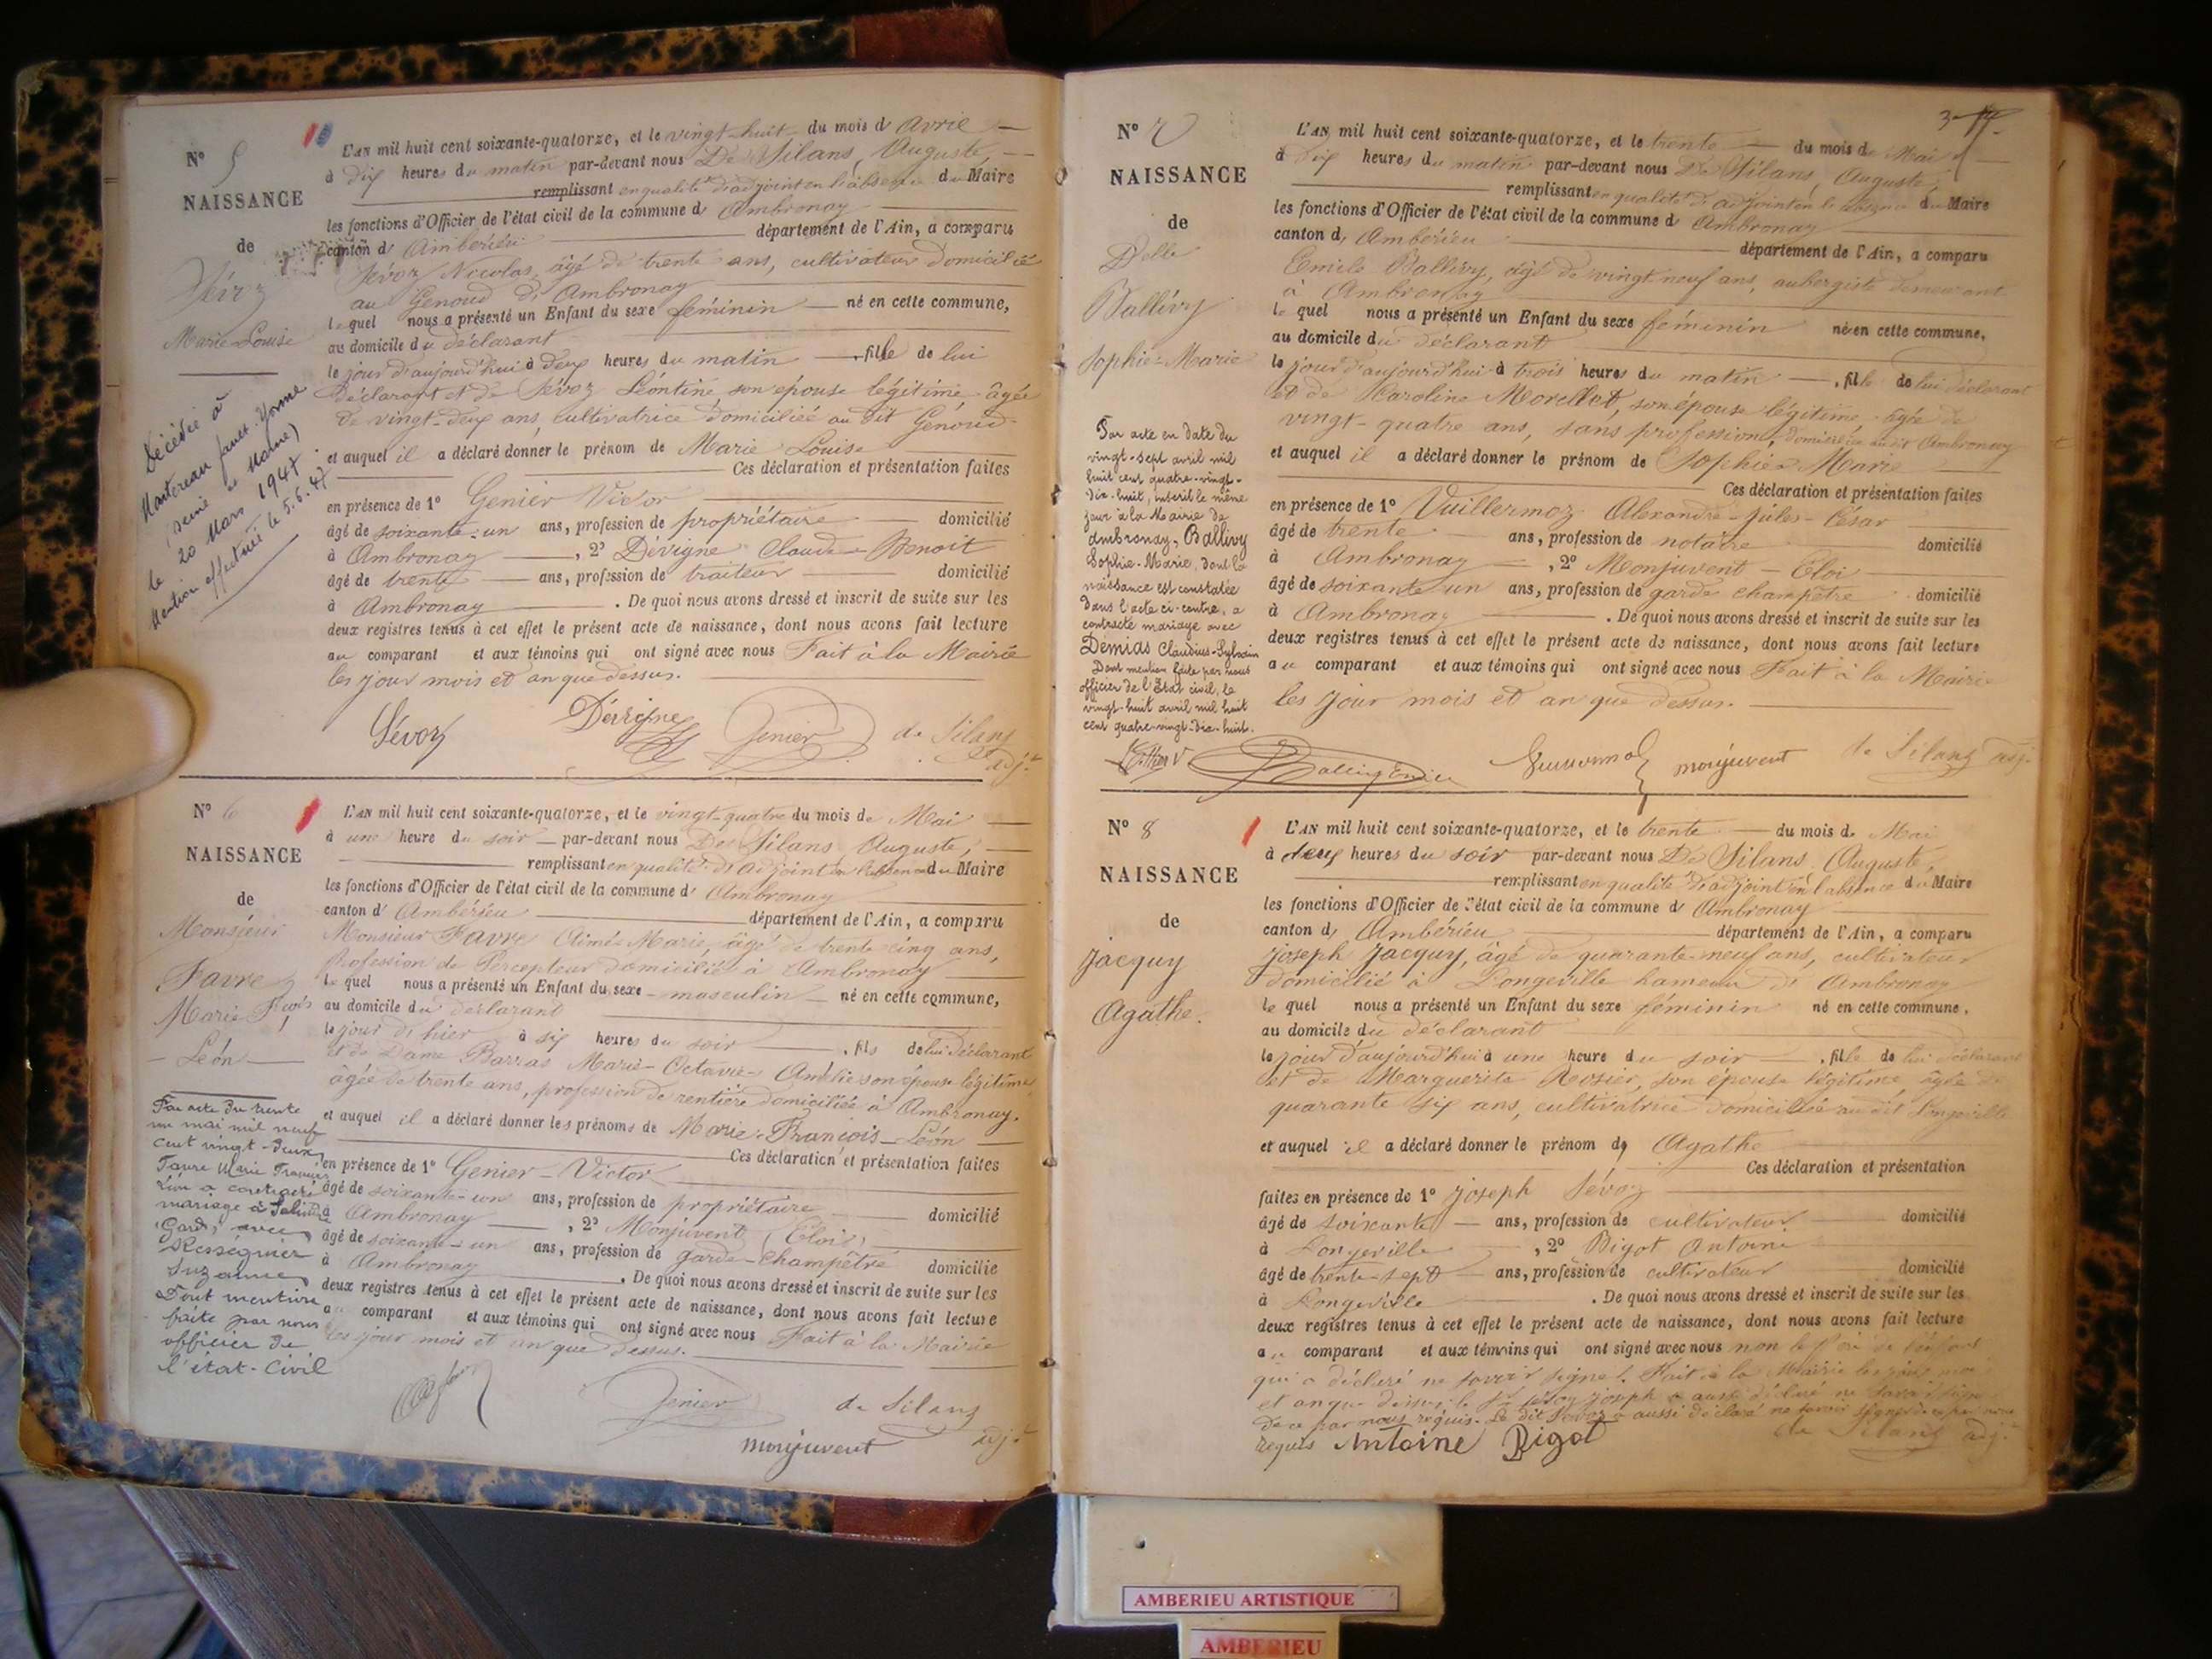 N° 5
NAISSANCE
de
Sévoz
Marie Louise
Décédée à
Montereau fault-Yonne
(Seine et Marne)
le 20 Mars 1947.
Mention effectuée le 5.6.47
L'AN mil huit cent soixante-quatorze, et le vingt-huit du mois d'Avril
à dix heures du matin par-devant nous De Silans, Auguste,
remplissant en qualité d'adjoint en l'absence du Maire
les fonctions d'Officier de l'état civil de la commune d'Ambronay
canton d'Ambérieu département de l'Ain, a comparu
Sévoz Nicolas, âgé de trente ans, cultivateur domicilié
au Genoud d'Ambronay
lequel nous a présenté un Enfant du sexe féminin né en cette commune,
au domicile du déclarant
le jour d'aujourd'hui à deux heures du matin , fille de lui
déclarant et de Sévoz Léontine, son épouse légitime âgée
de vingt-deux ans, cultivatrice domiciliée au dit Genoud
et auquel il a déclaré donner le prénom de Marie Louise
Ces déclaration et présentation faites
en présence de 1° Genier Victor
âgé de soixante-un ans, profession de propriétaire domicilié
à Ambronay , 2° Dévigne Claude-Benoit
âgé de trente ans, profession de traiteur domicilié
à Ambronay . De quoi nous avons dressé et inscrit de suite sur les
deux registres tenus à cet effet le présent acte de naissance, dont nous avons fait lecture
au comparant et aux témoins qui ont signé avec nous Fait à la Mairie
les jour mois et an que dessus.
Sévoz Dévigne Genier de Silans
adjt
N° 6
NAISSANCE
de
Monsieur
Favre
Marie Fçois
Léon
Par acte du trente
un mai mil neuf
cent vingt-deux
Favre Marie François
Léon a contracté
mariage à Salindre
(Gard) avec
Rességuier
Suzanne
Dont mention
faite par nous
officier de
l'état-Civil
L'AN mil huit cent soixante-quatorze, et le vingt-quatre du mois de Mai
à une heure du soir par-devant nous De Silans Auguste,
remplissant en qualité d'adjoint en l'absence du Maire
les fonctions d'Officier de l'état civil de la commune d'Ambronay
canton d'Ambérieu département de l'Ain, a comparu
Monsieur Favre Aimé-Marie, âgé de trente-cinq ans,
profession de Percepteur domicilié à Ambronay
lequel nous a présenté un Enfant du sexe masculin né en cette commune,
au domicile du déclarant
le jour d'hier à six heures du soir , fils de lui déclarant
et de Dame Barras Marie-Octavie-Amélie son épouse légitime
âgée de trente ans, profession de rentière domiciliée à Ambronay.
et auquel il a déclaré donner les prénoms de Marie-François-Léon
Ces déclaration et présentation faites
en présence de 1° Genier-Victor
âgé de soixante-un ans, profession de propriétaire domicilié
à Ambronay , 2° Monjuvent (Eloi)
âgé de soixante-un ans, profession de garde-champêtre domicilié
à Ambronay . De quoi nous avons dressé et inscrit de suite sur les
deux registres tenus à cet effet le présent acte de naissance, dont nous avons fait lecture
au comparant et aux témoins qui ont signé avec nous Fait à la Mairie
les jour mois et an que dessus.
Genier de Silans
monjuvent adjt
3
N° 7
NAISSANCE
de
Delle
Ballivy
Sophie-Marie
Par acte en date du
vingt-sept avril mil
huit cent quatre-vingt-
dix-huit, inscrit le même
jour à la Mairie de
Ambronay, Ballivy
Sophie-Marie, dont la
naissance est constatée
dans l'acte ci-contre, a
contracté mariage avec
Démias Claudius-Sylvain
Dont mention faite par nous
officier de l'Etat civil, le
vingt-huit avril mil huit
cent quatre-vingt-dix-huit.
L'AN mil huit cent soixante-quatorze, et le trente du mois de Mai
à dix heures du matin par-devant nous De Silans, Auguste,
remplissant en qualité d'adjoint en l'absence du Maire
les fonctions d'Officier de l'état civil de la commune d'Ambronay
canton d'Ambérieu département de l'Ain, a comparu
Emile Ballivy, âgé de vingt neuf ans, aubergiste demeurant
à Ambronay
lequel nous a présenté un Enfant du sexe féminin né en cette commune,
au domicile du déclarant
le jour d'aujourd'hui à trois heures du matin , fille de lui déclarant
et de Caroline Morellet, son épouse légitime âgée de
vingt-quatre ans, sans profession, domiciliée au dit Ambronay
et auquel il a déclaré donner le prénom de Sophie-Marie
Ces déclaration et présentation faites
en présence de 1° Vuillermoz Alexandre-Jules-César
âgé de trente ans, profession de notaire domicilié
à Ambronay , 2° Monjuvent-Eloi
âgé de soixante un ans, profession de garde champêtre domicilié
à Ambronay . De quoi nous avons dressé et inscrit de suite sur les
deux registres tenus à cet effet le présent acte de naissance, dont nous avons fait lecture
au comparant et aux témoins qui ont signé avec nous Fait à la Mairie
les jour mois et an que dessus.
Ballivy Emile Vuillermoz monjuvent de Silans adjt
N° 8
NAISSANCE
de
Jacquy
Agathe.
L'AN mil huit cent soixante-quatorze, et le trente du mois de Mai
à deux heures du soir par-devant nous De Silans, Auguste,
remplissant en qualité d'adjoint en l'absence du Maire
les fonctions d'Officier de l'état civil de la commune d'Ambronay
canton d'Ambérieu département de l'Ain, a comparu
Joseph Jacquy, âgé de quarante-neuf ans, cultivateur
domicilié à Longeville hameau d'Ambronay
lequel nous a présenté un Enfant du sexe féminin né en cette commune,
au domicile du déclarant
le jour d'aujourd'hui à une heure du soir , fille de lui déclarant
et de Marguerite Rosier, son épouse légitime, âgée de
quarante six ans, cultivatrice domiciliée au dit Longeville
et auquel il a déclaré donner le prénom de Agathe
Ces déclaration et présentation
faites en présence de 1° Joseph Sévoz
âgé de soixante ans, profession de cultivateur domicilié
à Longeville , 2° Bigot Antoine
âgé de trente-sept ans, profession de cultivateur domicilié
à Longeville . De quoi nous avons dressé et inscrit de suite sur les
deux registres tenus à cet effet le présent acte de naissance, dont nous avons fait lecture
au comparant et aux témoins qui ont signé avec nous non le Père de l'enfant
qui a déclaré ne savoir signer. Fait à la Mairie les jour, mois
et an que dessus, le Sr Sévoz Joseph a aussi déclaré ne savoir signer
de ce par nous requis. Le dit Sévoz a aussi déclaré ne savoir signer de ce par nous
requis Antoine Bigot de Silans adjt
AMBERIEU ARTISTIQUE
AMBERIEU